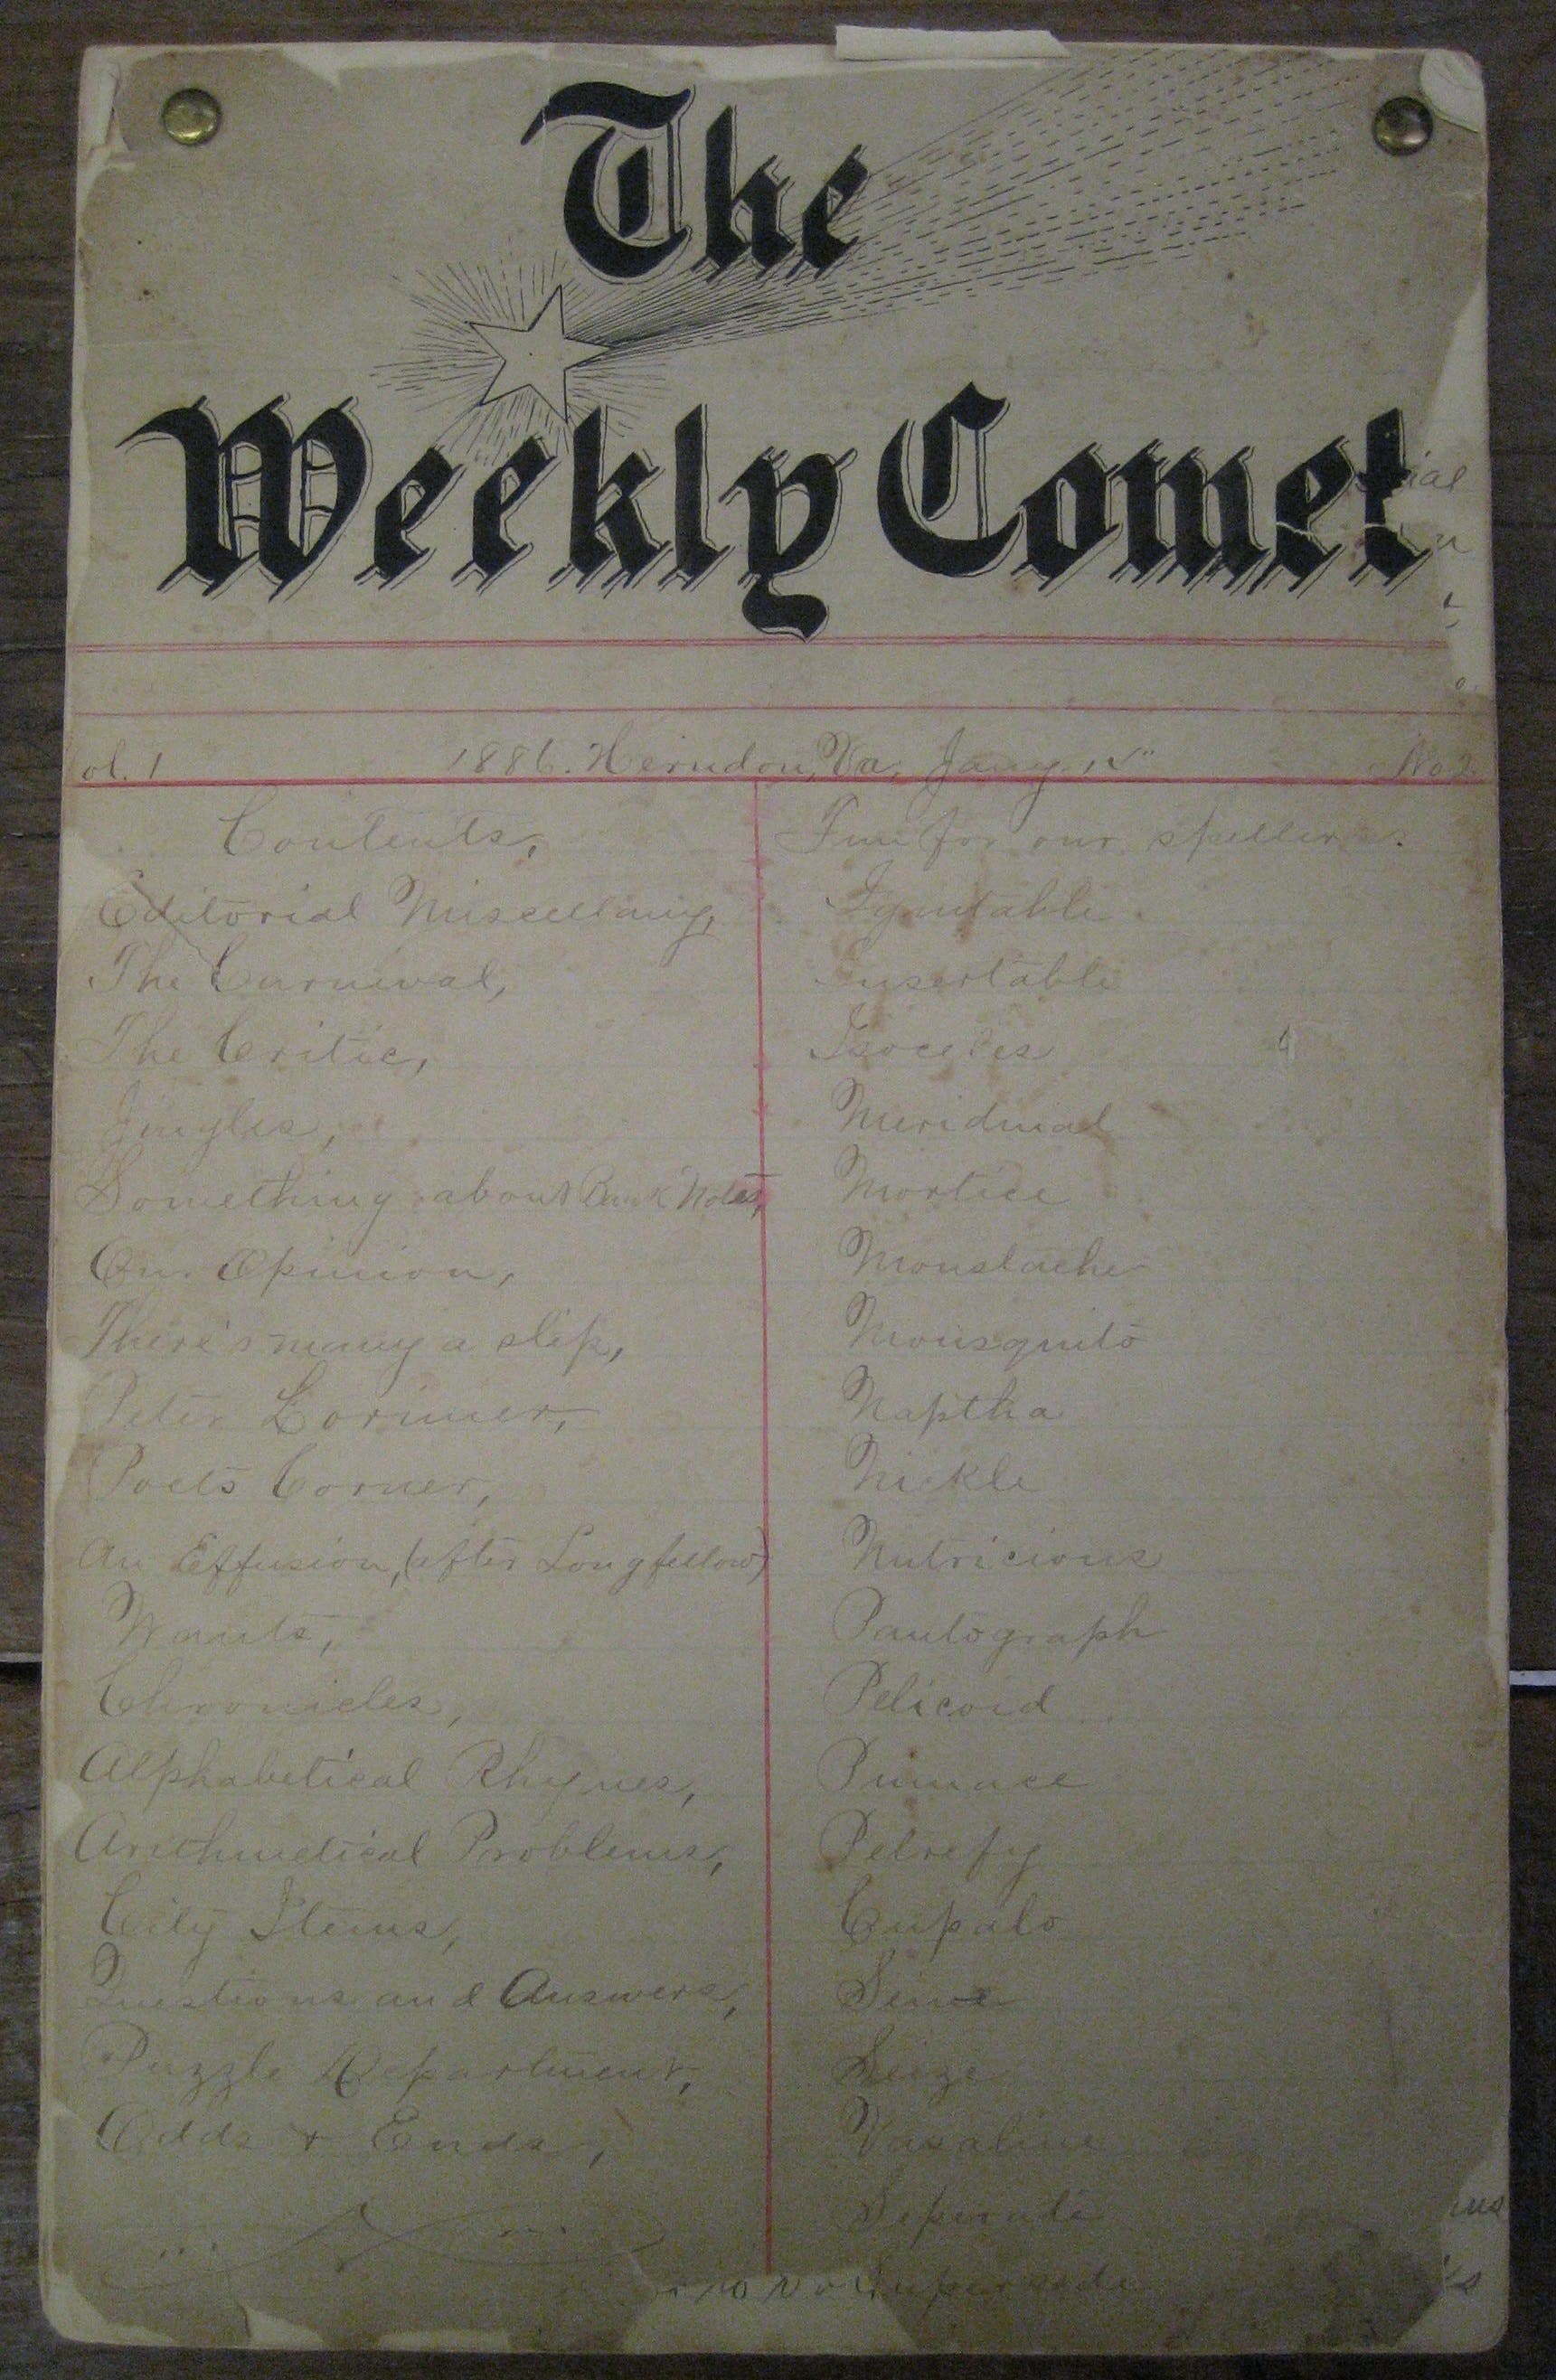 The
Weekly Comet
ol. 1 1886. Herndon, Va, Jany. No 2.
Contents,
Editorial Miscellany,
The Carnival,
The Critic,
Jingles,
Something about Bank Notes,
Our Opinion,
There's many a slip,
Peter Lorimer,
Poets Corner,
An Effusion, (after Longfellow)
Wants,
Chronicles,
Alphabetical Rhymes,
Arithmetical Problems,
City Items,
Questions and Answers,
Puzzle Department,
Odds & Ends,
Fun for our spellers.
Insertable
Isoceles
Meridinal
Mortice
Moustache
Mousquito
Naptha
Nickle
Nutricious
Pantograph
Pelicoid
Pinnace
Petrefy
Cupalo
Seize
Vasaline
Seperate
Supersede